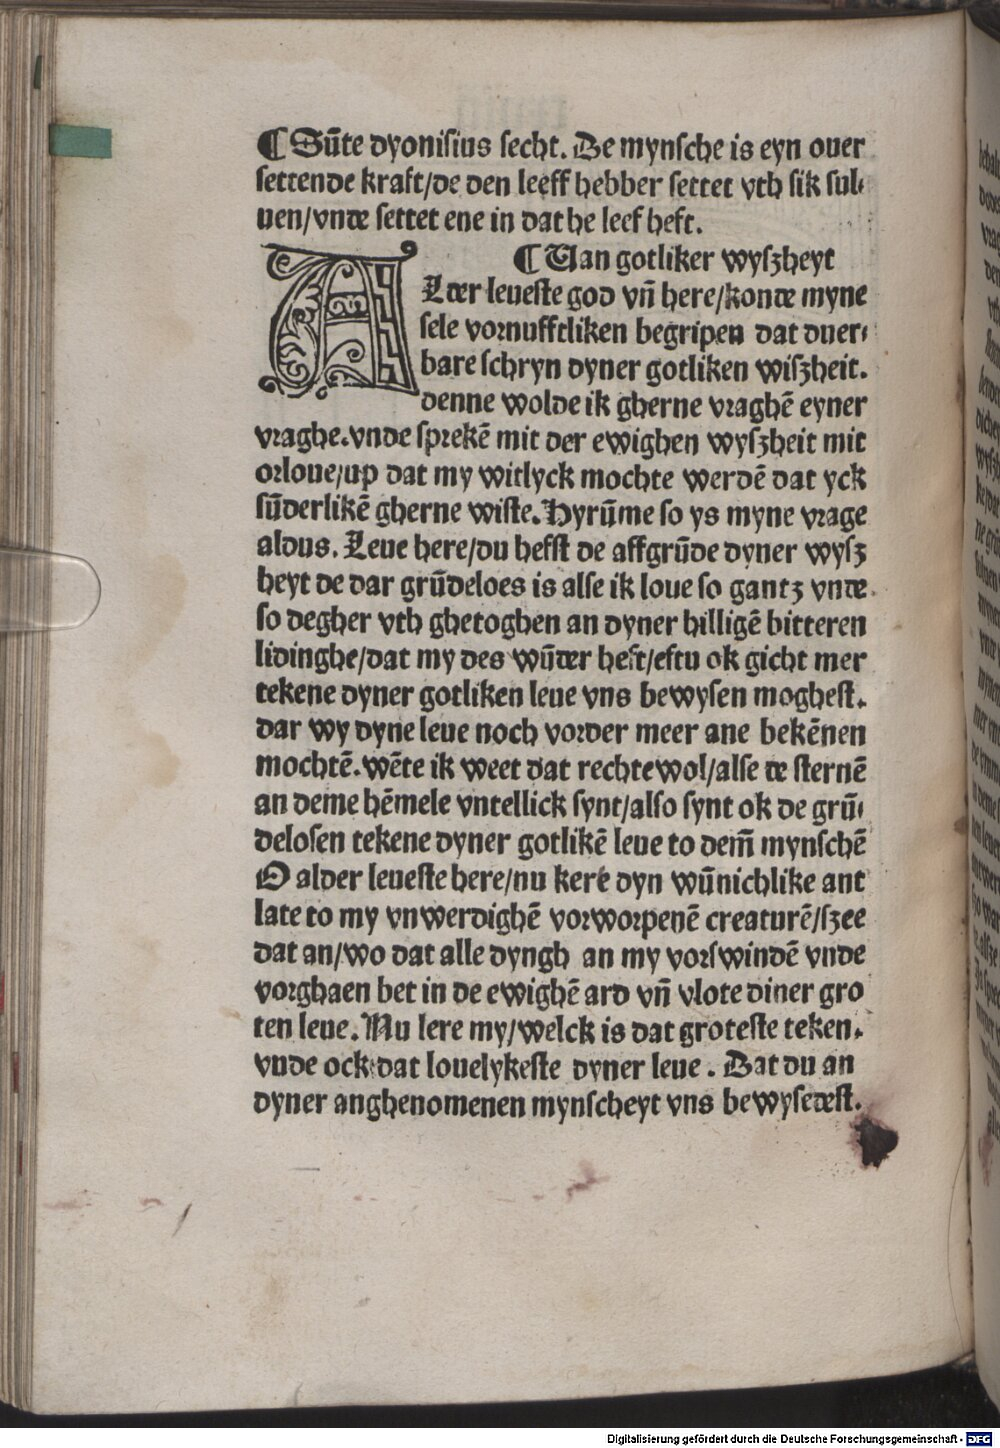 ¶ Sūte dyonisius secht. De mynsche is eyn ouer
settende kraft/de den leeff hebber settet vth sik sul⸗
uen/vnde settet ene in dat he leef heft.
¶ Uan gotliker wyſzheyt
ALder leueste god vn̄ here/konde myne
sele vornufftliken begripen dat duer⸗
bare schryn dyner gotliken wiſzheit.
denne wolde ik gherne vraghē eyner
vraghe.vnde sprekē mit der ewighen wyſzheit mit
orloue/up dat my witlyck mochte werdē dat yck
sūderlikē gherne wiste. Hyrūme so ys myne vrage
aldus. Leue here/du hefst de affgrūde dyner wyſz
heyt de dar grūdeloes is alse ik loue so gantz vnde
so degher vth ghetoghen an dyner hilligē bitteren
lidinghe/dat my des wūder heft/eftu ok gicht mer
tekene dyner gotliken leue vns bewysen moghest.
dar wy dyne leue noch vorder meer ane bekēnen
mochtē.wēte ik weet dat rechte wol/alse de sternē
an deme hēmele vntellick synt/also synt ok de grū⸗
delosen tekene dyner gotlikē leue to dem̄ mynschē
O alder leueste here/nu kere dyn wūnichlike ant
late to my vnwerdighē vorworpenē creaturē/ſzee
dat an/wo dat alle dyngh an my vorswindē vnde
vorghaen bet in de ewighē ard vn̄ vlote diner gro
ten leue. Nu lere my/welck is dat groteste teken.
vnde ock dat louelykeste dyner leue. Dat du an
dyner anghenomenen mynscheyt vns bewysedest.
Digitalisierung gefördert durch die Deutsche Forschungsgemeinschaft - DFG